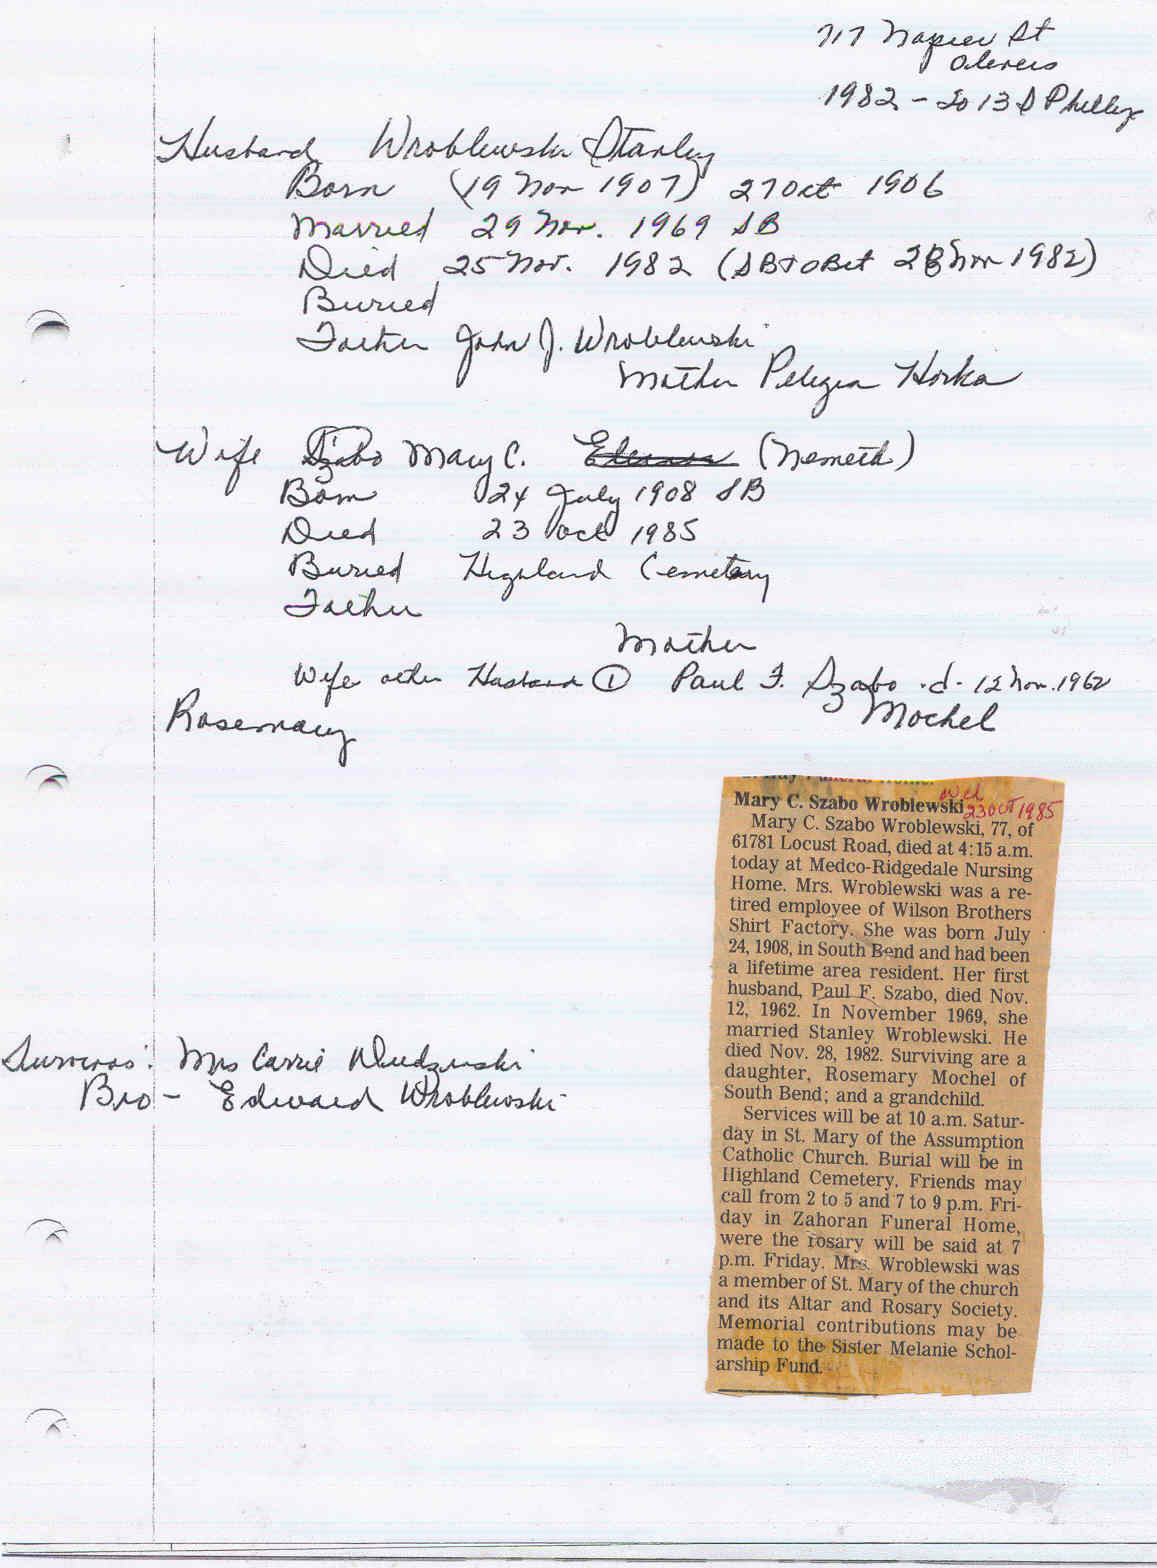 717 Napier St
1982 - 2013 S Phillip
Husband Wroblewski Stanley
Born (19 Nov 1907) 27 Oct 1906
Married 29 Nov. 1969 SB
Died 25 Nov. 1982 (SBT Obit 28 Nov 1982)
Buried
Father John J. Wroblewski
Mother Horka
Wife Szabo Mary C. (Nemeth)
Born 24 July 1908 SB
Died 23 Oct 1985
Buried Highland Cemetery
Father
Mother
Wife other Husband ① Paul F. Szabo d. 12 Nov. 1962
Rosemary Mochel
Wed
23 OCT 1985
Mary C. Szabo Wroblewski
Mary C. Szabo Wroblewski, 77, of
61781 Locust Road, died at 4:15 a.m.
today at Medco-Ridgedale Nursing
Home. Mrs. Wroblewski was a re-
tired employee of Wilson Brothers
Shirt Factory. She was born July
24, 1908, in South Bend and had been
a lifetime area resident. Her first
husband, Paul F. Szabo, died Nov.
12, 1962. In November 1969, she
married Stanley Wroblewski. He
died Nov. 28, 1982. Surviving are a
daughter, Rosemary Mochel of
South Bend; and a grandchild.
Services will be at 10 a.m. Satur-
day in St. Mary of the Assumption
Catholic Church. Burial will be in
Highland Cemetery. Friends may
call from 2 to 5 and 7 to 9 p.m. Fri-
day in Zahoran Funeral Home,
were the rosary will be said at 7
p.m. Friday. Mrs. Wroblewski was
a member of St. Mary of the church
and its Altar and Rosary Society.
Memorial contributions may be
made to the Sister Melanie Schol-
arship Fund.
Mrs Carrie
Bro - Edward Wroblewski